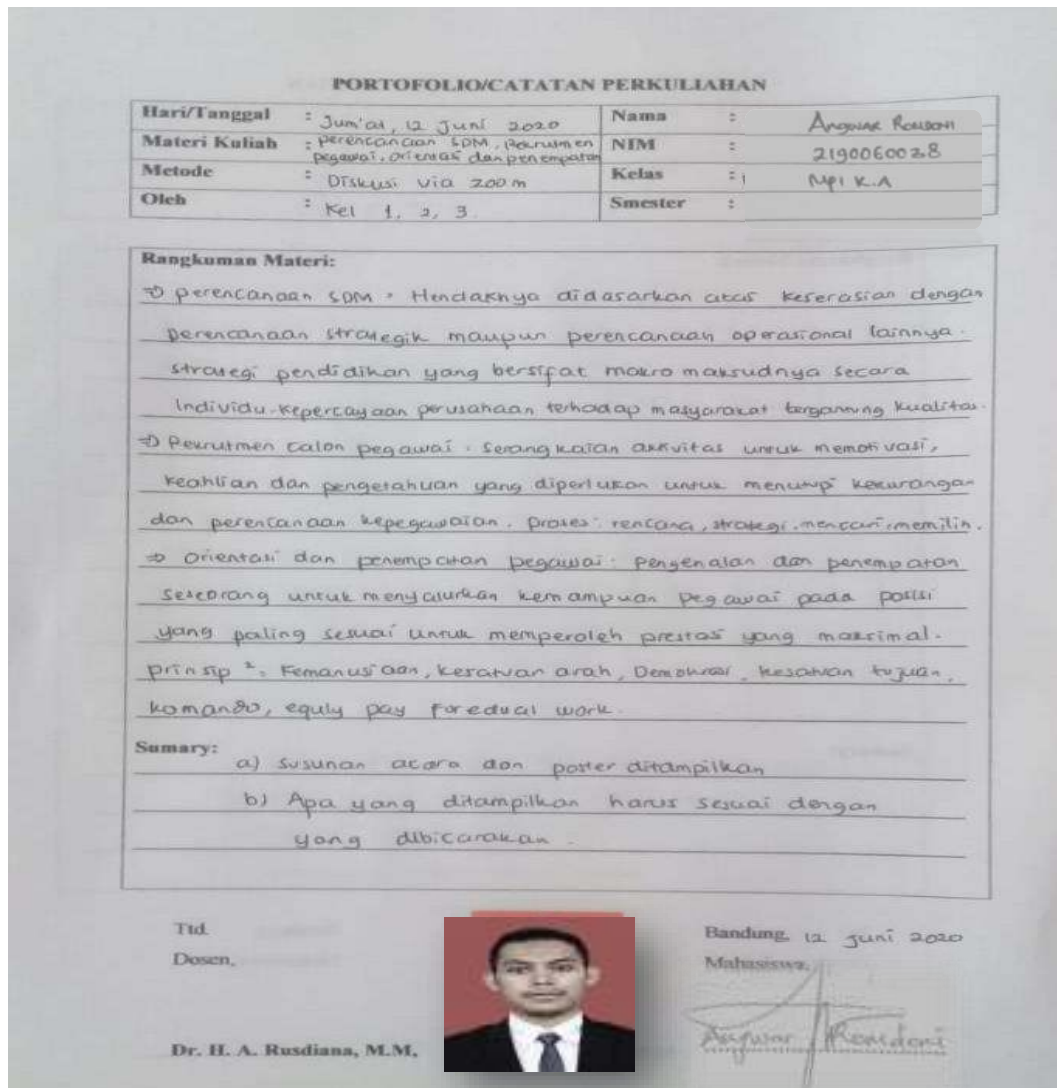 PORTOFOLIO/CATATAN PERKULIAHAN
Hari/Tanggal : Jum'at, 12 Juni 2020
Nama : Angwar Romdoni
Materi Kuliah : perencanaan SDM, Rekrutmen
pegawai, orientasi dan penempatan
NIM : 2190060028
Metode : Diskusi via zoom
Kelas : MPI K.A
Oleh : Kel 1, 2, 3.
Smester :
Rangkuman Materi:
⇒ perencanaan SDM : Hendaknya didasarkan atas keserasian dengan
perencanaan strategik maupun perencanaan operasional lainnya.
strategi pendidikan yang bersifat makro maksudnya secara
Individu. kepercayaan perusahaan terhadap masyarakat tergantung kualitas.
⇒ Rekrutmen calon pegawai : serangkaian aktivitas untuk memotivasi,
keahlian dan pengetahuan yang diperlukan untuk menutupi kekurangan
dan perencanaan kepegawaian. proses : rencana, strategi, mencari, memilih.
⇒ orientasi dan penempatan pegawai : pengenalan dan penempatan
seseorang untuk menyalurkan kemampuan pegawai pada posisi
yang paling sesuai untuk memperoleh prestasi yang maksimal.
prinsip ² : Kemanusiaan, kesatuan arah, Demokrasi, kesatuan tujuan,
komando, equly pay foredual work.
Sumary:
a) susunan acara dan poster ditampilkan
b) Apa yang ditampilkan harus sesuai dengan
yang dibicarakan.
Ttd.
Dosen,
Bandung, 12 juni 2020
Mahasiswa,
Dr. H. A. Rusdiana, M.M,
Angwar Romdoni